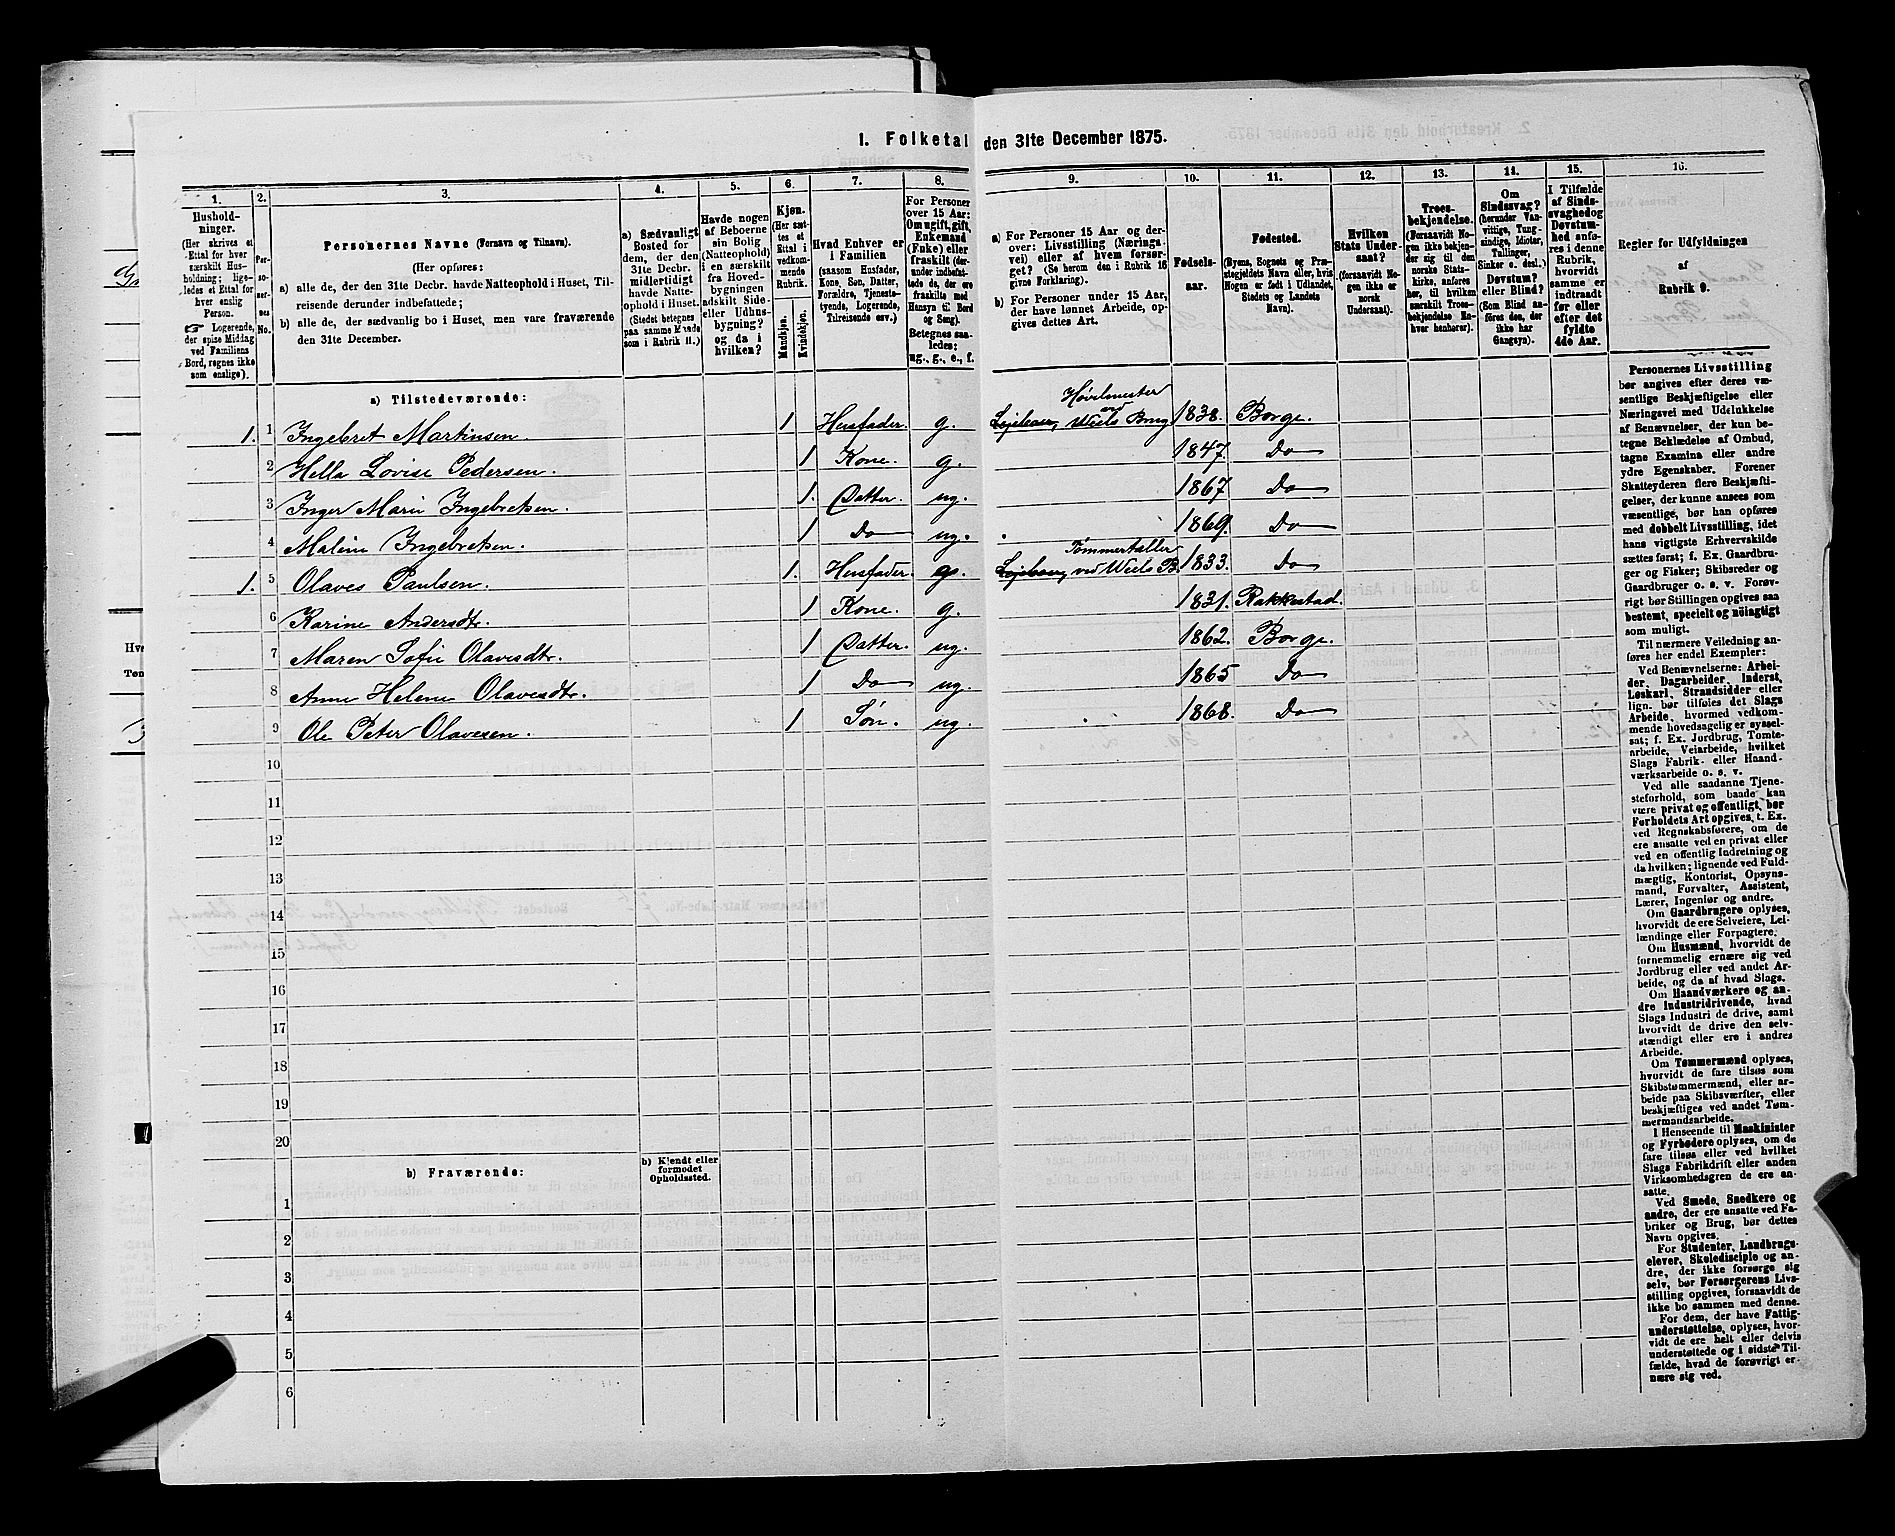 1. Folketal den 31te December 1875.
1.
Hushold-
ninger.
(Her skrives et
Ettal for hver
særskilt Hus-
holdning; lige-
ledes et Ettal for
hver enslig
Person.
☞ Logerende,
der spise Middag
ved Familiens
Bord, regnes ikke
som enslige).
2.
Per-
so-
ner-
nes
No.
3.
Personernes Navne (Fornavn og Tilnavn).
(Her opføres:
a) alle de, der den 31te Decbr. havde Natteophold i Huset, Til-
reisende derunder indbefattede;
b) alle de, der sædvanlig bo i Huset, men vare fraværende
den 31te December.
4.
a) Sædvanligt
Bosted for
dem, der den
31te Decbr.
midlertidigt
havde Natte-
ophold i Huset.
(Stedet betegnes
paa samme Maade
som i Rubrik 11.)
5.
Havde nogen
af Beboerne
sin Bolig
(Natteophold)
i en særskilt
fra Hoved-
bygningen
adskilt Side-
eller Udhus-
bygning?
og da i
hvilken?
6.
Kjøn.
(Her sæt-
tes et
Ettal i
vedkom-
mende
Rubrik.
Mandkjøn.
Kvindekjøn.
7.
Hvad Enhver er
i Familien
(saasom Husfader,
Kone, Søn, Datter,
Forældre, Tjeneste-
tyende, Logerende,
Tilreisende osv.)
8.
For Personer
over 15 Aar:
Om ugift, gift,
Enkemand
(Enke) eller
fraskilt (der-
under indbefat-
tede de, der ere
fraskilte med
Hensyn til Bord
og Seng).
Betegnes saa-
ledes:
ug., g., e., f.
9.
a) For Personer 15 Aar og der-
over: Livsstilling (Nærings-
vei) eller af hvem forsør-
get? (Se herom den i Rubrik 16
givne Forklaring).
b) For Personer under 15 Aar,
der have lønnet Arbeide, op-
gives dettes Art.
10.
Fødsels-
aar.
11.
Fødested.
(Byens, Sognets og Præ-
stegjeldets Navn eller, hvis
Nogen er født i Udlandet,
Stedets og Landets
Navn).
12.
Hvilken
Stats Under-
saat?
(forsaavidt No-
gen ikke er
norsk
Undersaat).
13.
Troes-
bekjendelse.
(Forsaavidt No-
gen ikke bekjen-
der sig til den
norske Stats-
kirke, anføres
her, til hvilken
særskilt Troes-
bekjendelse En-
hver henhører).
14.
Om
Sindssvag?
(herunder Van-
vittige, Tung-
sindige, Idioter,
Tullinger,
Sinker o. desl.).
Døvstum?
eller Blind?
(Som Blind an-
føres den, der
ikke har
Gangsyn).
15.
I Tilfælde
af Sinds-
svaghed og
Døvstum-
hed anfø-
res i denne
Rubrik,
hvorvidt
samme er
indtraadt
før eller
efter det
fyldte
4de Aar.
16.
Regler for Udfyldningen
af
Rubrik 9.
a) Tilstedeværende:
1. 1 Ingebret Martinsen. 1 Husfader. g. Høvelmester ved Wiels Brug 1838. Borge.
2 Hella Lovise Pedersen. 1 Kone. g. 1847. Do
3 Inger Marie Ingebretsen. 1. Datter. ug. 1867. Do
4 Maline Ingebretsen. 1 Do ug. 1869. Do
1. 5 Olaves Paulsen. 1. Husfader. g. Tømmertæller ved Wiels B. 1833. Do
6 Karine Andersdtr. 1 Kone. g. 1831. Rakkestad.
7 Maren Sofie Olavesdtr. 1 Datter. ug. 1862. Borge.
8 Anne Helene Olavesdtr. 1 Do ug. 1865 Do
9 Ole Peter Olavesen. 1 Søn. ug. 1868. Do
10
11
12
13
14
15
16
17
18
19
20
b) Fraværende:
b) Kjendt eller
formodet
Opholdssted.
1
2
3
4
5
6
Personernes Livsstilling
bør angives efter deres væ-
sentlige Beskjæftigelse eller
Næringsvei med Udelukkelse
af Benævnelser, der kun be-
tegne Beklædelse af Ombud,
tagne Examina eller andre
ydre Egenskaber. Forener
Skatteyderen flere Beskjæfti-
gelser, der kunne ansees som
væsentlige, bør han opføres
med dobbelt Livsstilling, idet
hans vigtigste Erhvervskilde
sættes først; f. Ex. Gaardbru-
ger og Fisker; Skibsreder og
Gaardbruger o. s. v. Forøv-
rigt bør Stillingen opgives saa
bestemt, specielt og nöiagtigt
som muligt.
Til nærmere Veiledning an-
føres her endel Exempler:
Ved Benævnelserne: Arbei-
der, Dagarbeider, Inderst,
Løskarl, Strandsidder eller
lign. bør tilføies det Slags
Arbeide, hvormed vedkom-
mende hovedsagelig er syssel-
sat; f. Ex. Jordbrug, Tomte-
arbeide, Veiarbeide, hvilket
Slags Fabrik- eller Haand-
værksarbeide o. s. v.
Ved alle saadanne Tjene-
steforhold, som baade kan
være privat og offentligt, bør
Forholdets Art opgives, t. Ex.
ved Regnskabsførere, om de
ere ansatte ved en privat eller
ved en offentlig Indretning og
da hvilken; lignende ved Fuld-
mægtig, Kontorist, Opsyns-
mand, Forvalter, Assistent,
Lærer, Ingeniør og andre.
Om Gaardbrugere oplyses,
hvorvidt de ere Selveiere, Lei-
lændinge eller Forpagtere.
Om Husmænd, hvorvidt de
fornemmelig ernære sig ved
Jordbrug eller ved andet Ar-
beide, og da af hvad Slags.
Om Haandværkere og an-
dre Industridrivende, hvad
Slags Industri de drive, samt
hvorvidt de drive den selv-
stændigt eller ere i andres
Arbeide.
Om Tømmermænd oplyses,
hvorvidt de fare tilsøs som
Skibstømmermænd, eller ar-
beide paa Skibsværfter, eller
beskjæftiges ved andet Tøm-
mermandsarbeide.
I Henseende til Maskinister
og Fyrbødere oplyses, om de
fare tilsøs eller ved hvilket
Slags Fabrikdrift eller anden
Virksomhedsgren de ere an-
satte.
Ved Smede, Snedkere og
andre, der ere ansatte ved Fa-
briker og Brug, bør dettes
Navn opgives.
For Studenter, Landbrugs-
elever, Skoledisciple og an-
dre, der ikke forsørge sig
selv, bør Forsørgerens Livs-
stilling opgives, forsaavidt de
ikke bo sammen med denne.
For dem, der have Fattig-
understøttelse, oplyses, hvor-
vidt de ere helt eller delvis
understøttede og i sidste Til-
fælde, hvad de forøvrigt er-
nære sig ved.